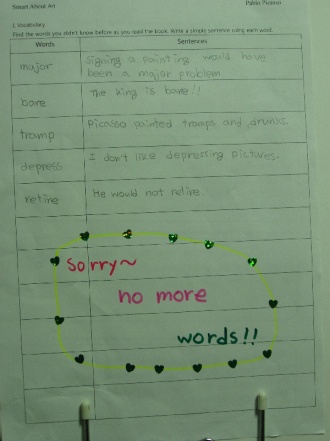 Smart About Art Pablo Picasso
1. Vocabulary
Find the words you didn't know before as you read the book. Write a simple sentence using each word.
Words Sentences
major Signing a painting would have
been a major problem
bare The king is bare!!
tramp Picasso painted tramps and drunks.
depress I don't like depressing pictures.
retire He would not retire.
Sorry~
no more
words!!